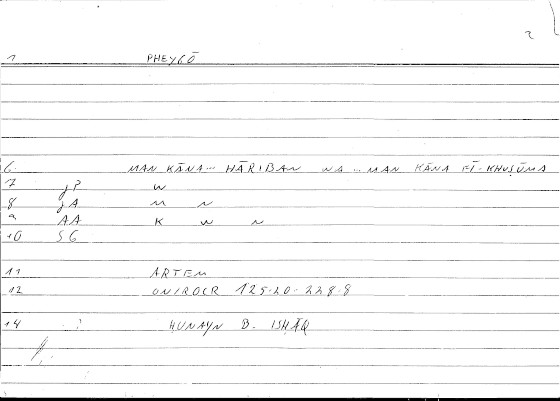 2
1 PHEYGŌ
6 MAN KĀNA... HĀRIBAN WA... MAN KĀNA FĪ-KHUṢŪMA
7 JP W
8 JA M N
9 AA K W N
10 SG
11 ARTEM
12 ONIROCR 125·20-228·8
14 HUNAYN B. ISḤĀQ